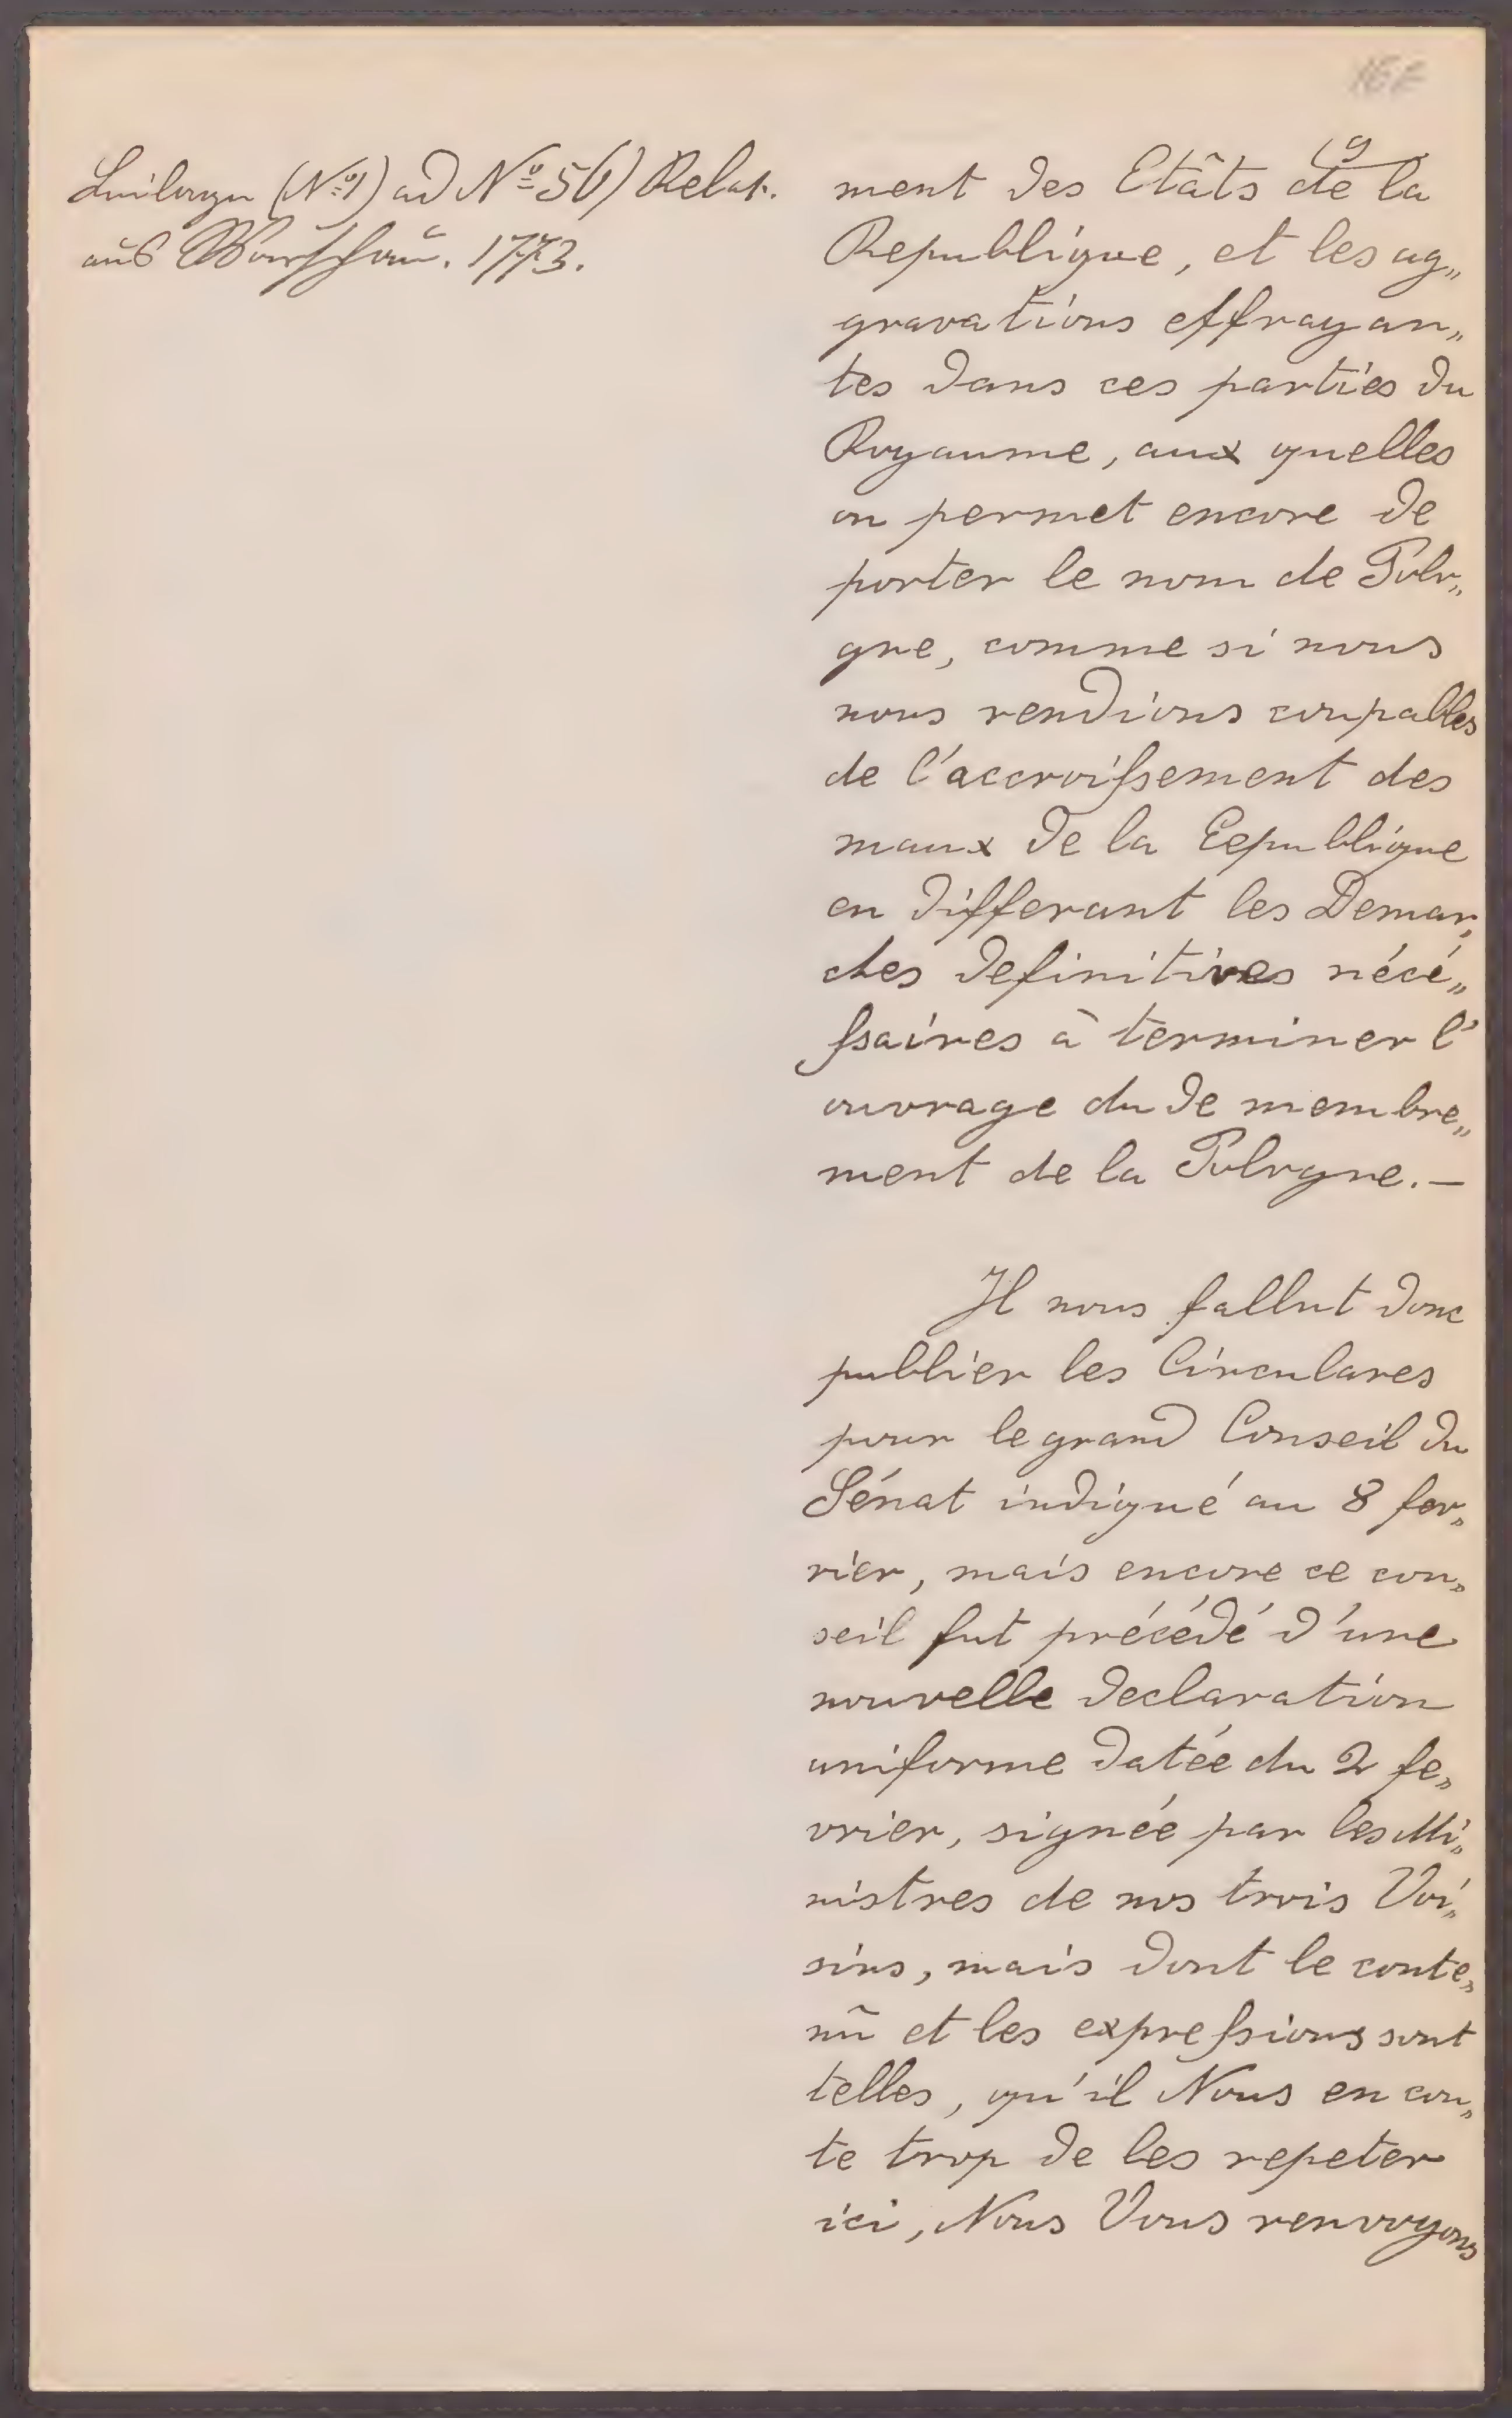 Beilage (Nº 1) ad Nº 56) Relat.
aus Warschau. 1773.
9
ment des Etâts de la
Republique, et les ag„
gravations effrayan„
tes dans ces parties du
Royaume, aux quelles
on permet encore de
porter le nom de Polo„
gne, comme si nous
nous rendions coupables
de l'accroissement des
maux de la Republique
en differant les Demar„
ches definitives nécé„
ssaires à terminer l'
ouvrage du de membre„
ment de la Pologne. —
Il nous fallut donc
publier les Circulares
pour le grand Conseil du
Sénat indiqué au 8 fev„
rier, mais encore ce con„
seil fut précédé d'une
nouvelle declaration
uniforme datée du 2 fe„
vrier, signée par les Mi„
nistres de nos trois Voi„
sins, mais dont le conte„
nũ et les expressions sont
telles, qu'il Nous en cou„
te trop de les repeter
ici, Nous Vous renvoyons